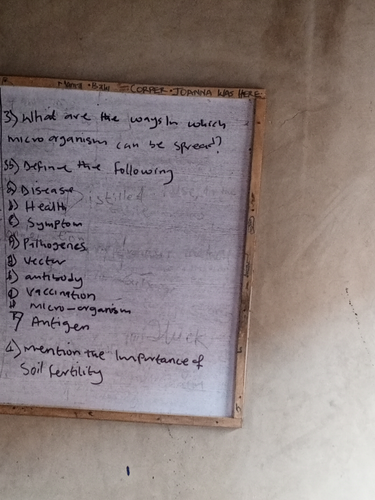 = CORPER • JOANNA WAS HERE
3) What are the ways in which
micro organism can be spread?
3b) Define the following
a) Disease
b) Health
c) Symptom
d) Pathogenes
e) Vector
f) antibody
g) Vaccination
H micro-organism
I) Antigen
4) mention the importance of
Soil fertility